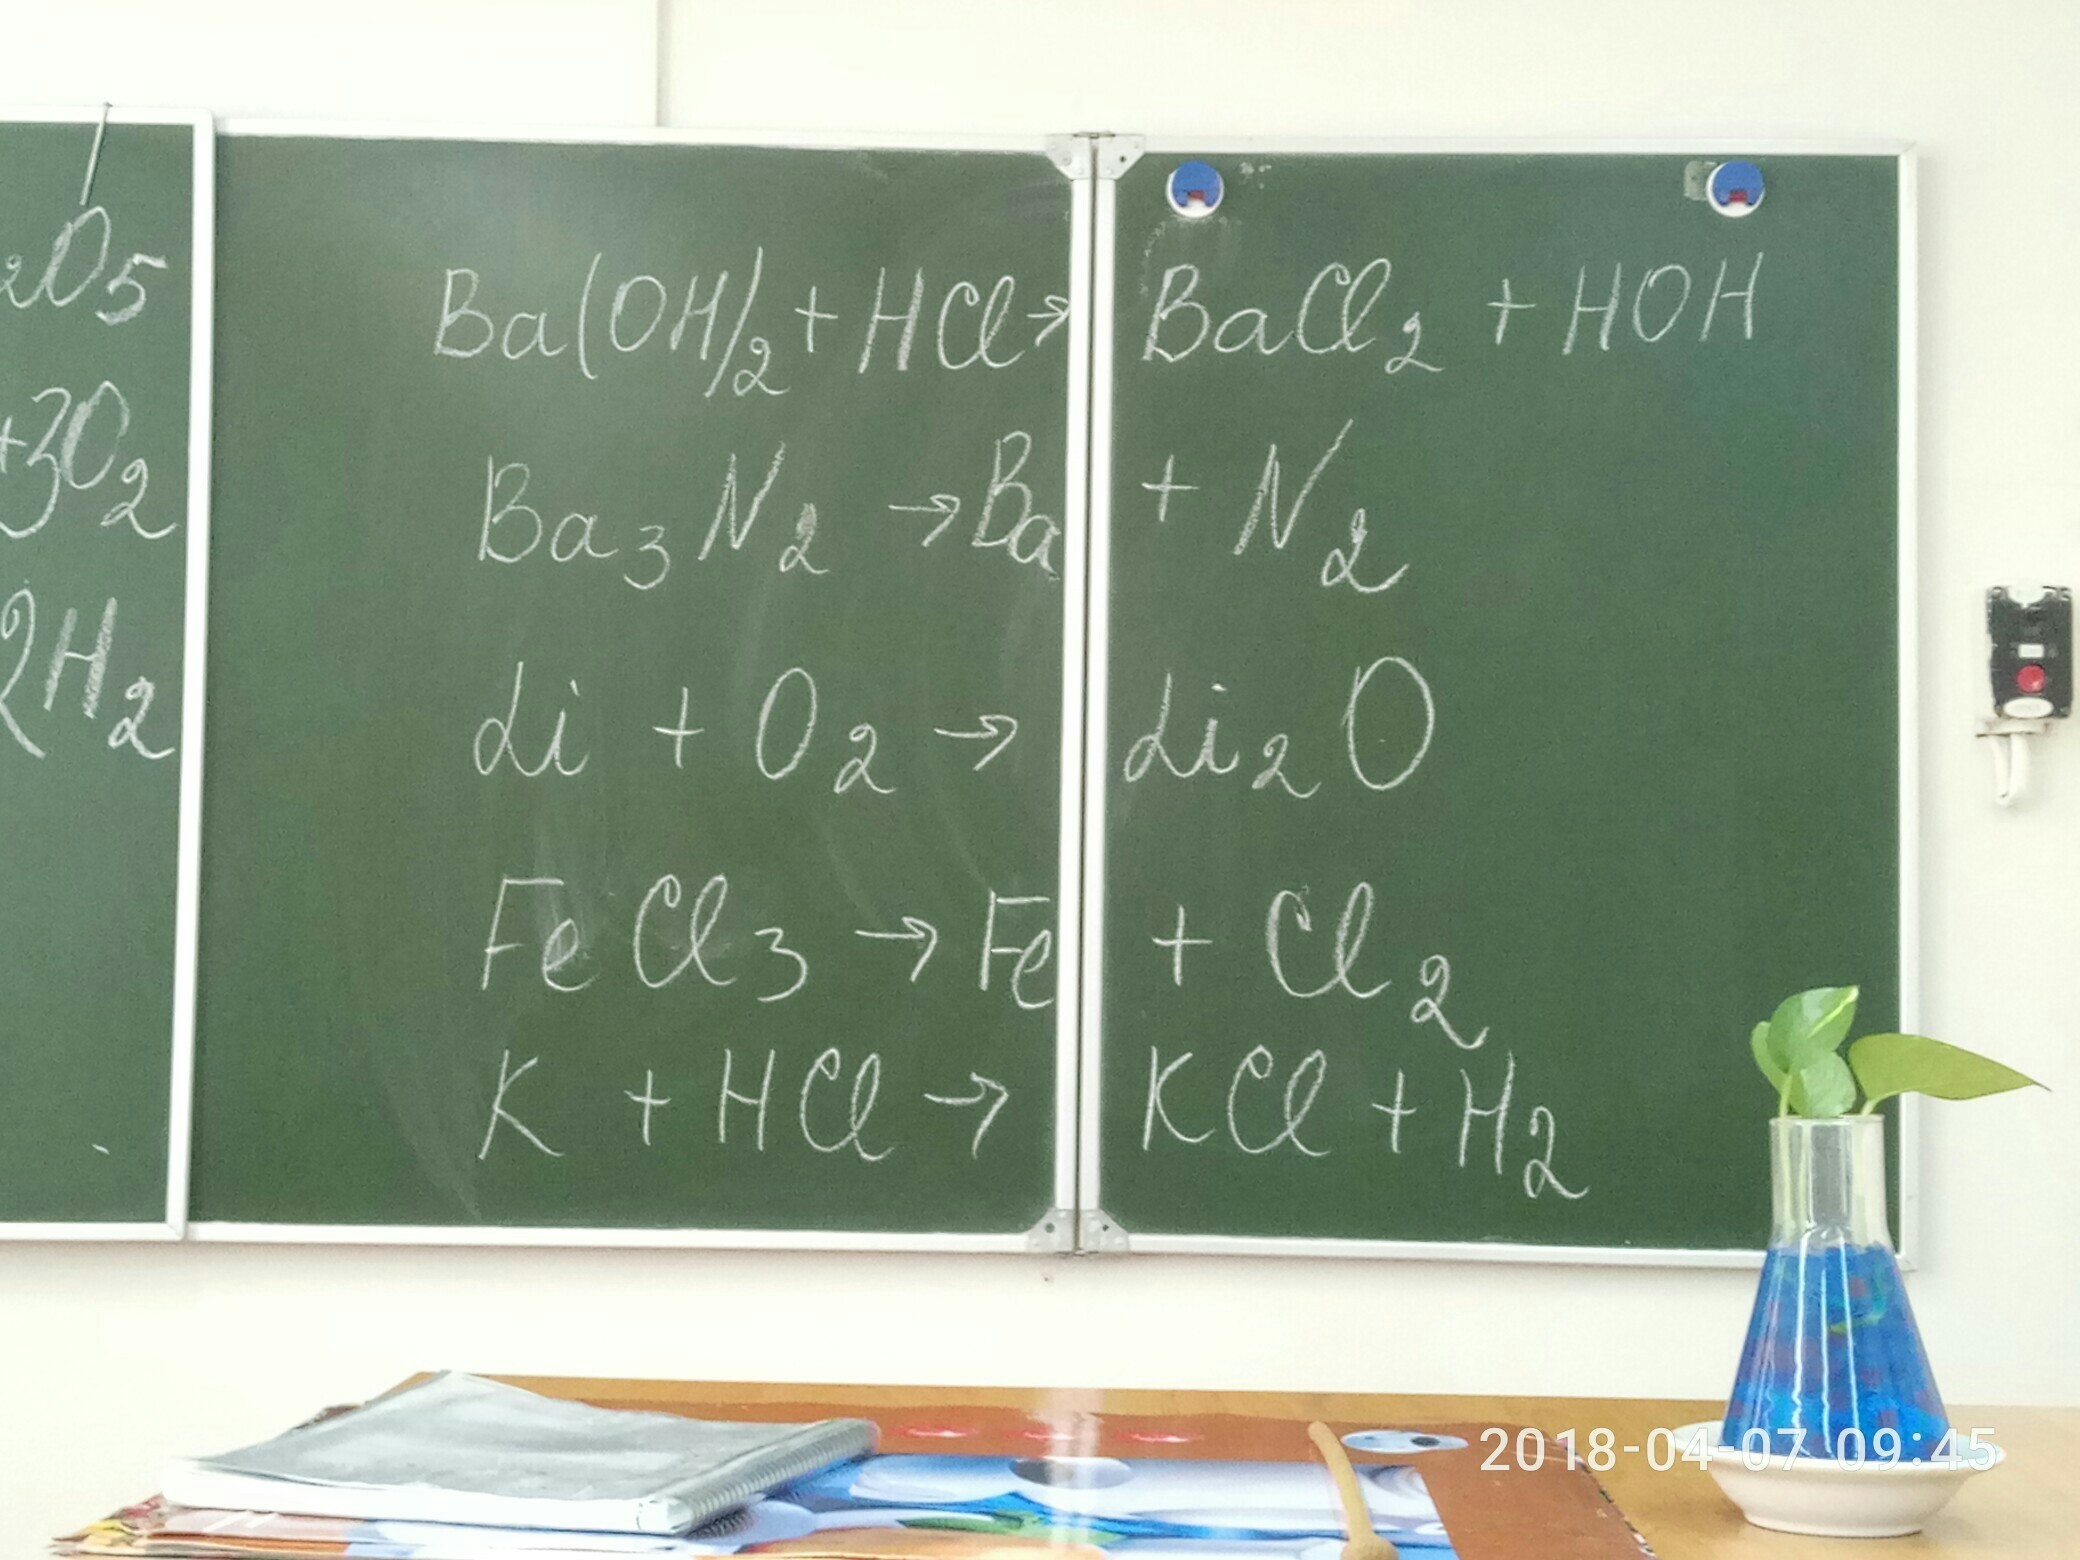 ₂O₅
+3O₂
2H₂
Ba(OH)₂ + HCl → BaCl₂ + HOH
Ba₃N₂ → Ba + N₂
Li + O₂ → Li₂O
FeCl₃ → Fe + Cl₂
K + HCl → KCl + H₂
2018-04-07 09:45